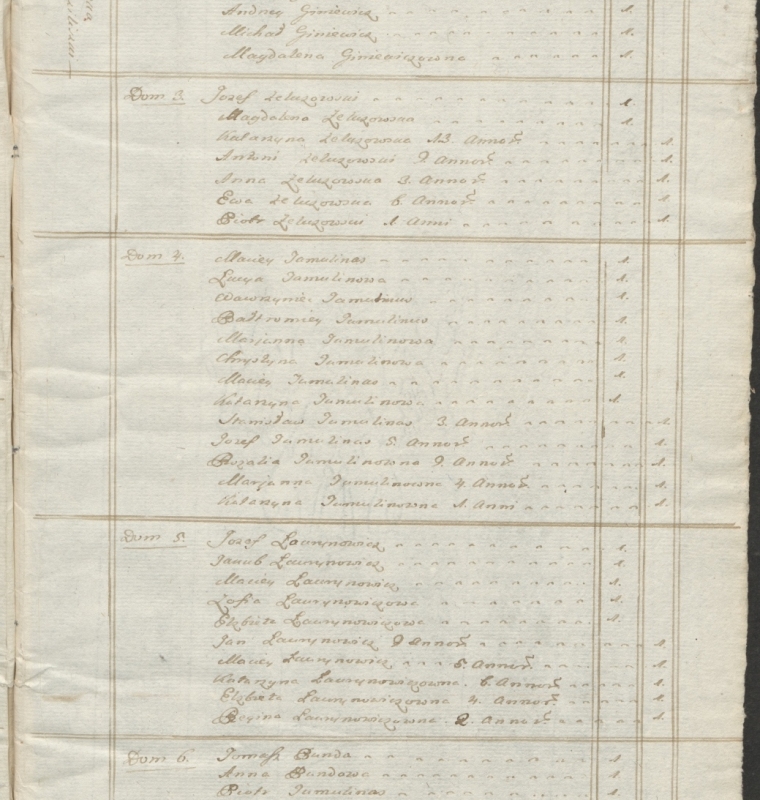 Andrzey Giniewicz 1.
Michał Giniewicz 1.
Magdalena Giniewiczowna 1.
Dom 3. Jozef Zeluzowski 1.
Magdalena Zeluzowska 1.
Katarzyna Zeluzowska 13. Annor. 1.
Antoni Zeluzowski 9. Annor. 1.
Anna Zeluzowska 3. Annor. 1.
Ewa Zeluzowska 6. Annor. 1.
Piotr Zeluzowski 1 Anni 1.
Dom 4. Maciey Jamulinas 1.
Łucya Jamulinowa 1.
Wawrzyniec Jamulinas 1.
Bałtromiey Jamulinas 1.
Marjanna Jamulinowa 1.
Chrystyna Jamulinowa 1.
Maciey Jamulinas 1.
Katarzyna Jamulinowa 1.
Stanisław Jamulinas 3. Annor. 1.
Jozef Jamulinas 5. Annor. 1.
Rozalia Jamulinowna 9. Annor. 1.
Marjanna Jamulinowna 4. Annor. 1.
Katarzyna Jamulinowna 1. Anni 1.
Dom 5. Jozef Ławrynowicz 1.
Jakub Ławrynowicz 1.
Maciey Ławrynowicz 1.
Zofia Ławrynowiczowa 1.
Elzbieta Ławrynowiczowa 1.
Jan Ławrynowicz 9 Annor. 1.
Maciey Ławrynowicz 5. Annor. 1.
Katarzyna Ławrynowiczowna 6. Annor. 1.
Elzbieta Ławrynowiczowna 4. Annor. 1.
Regina Ławrynowiczowna 2. Annor. 1.
Dom 6. Tomasz Bunda 1.
Anna Bundowa 1.
Piotr Jamulinas 1.